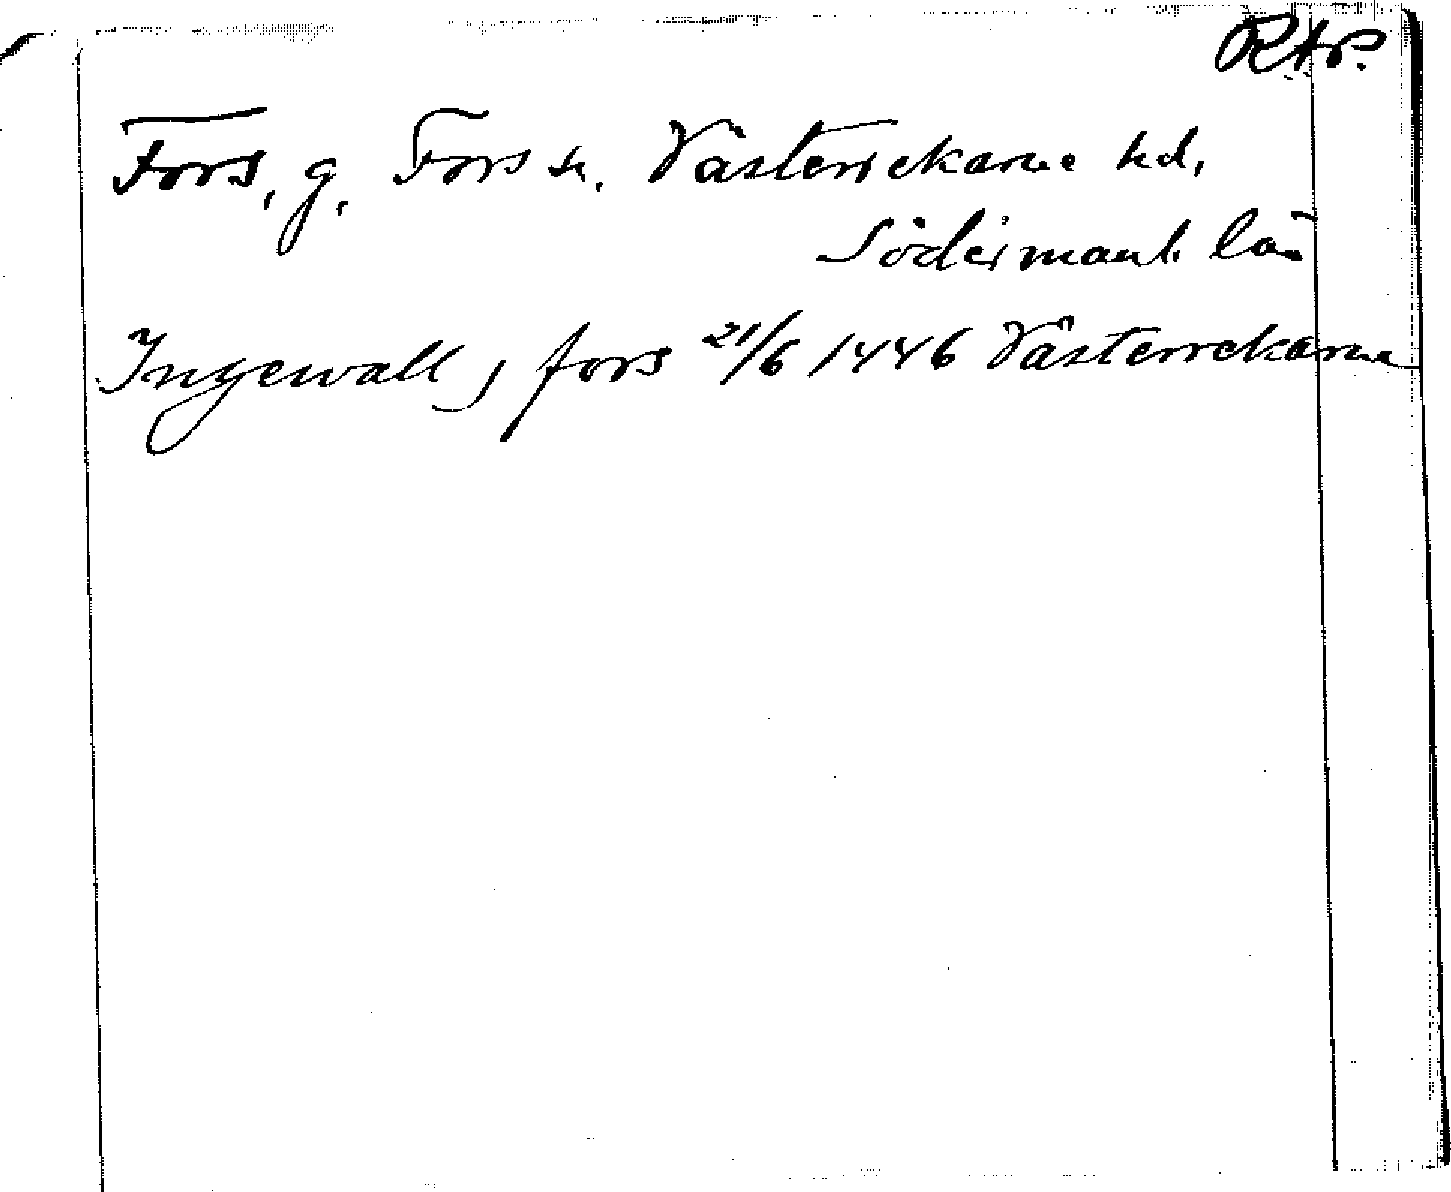 Fors, g, Fors sn. Västerrekarne hd,
Södermanl. län
Ingewall j fors 21/6 1446 Västerrekarne